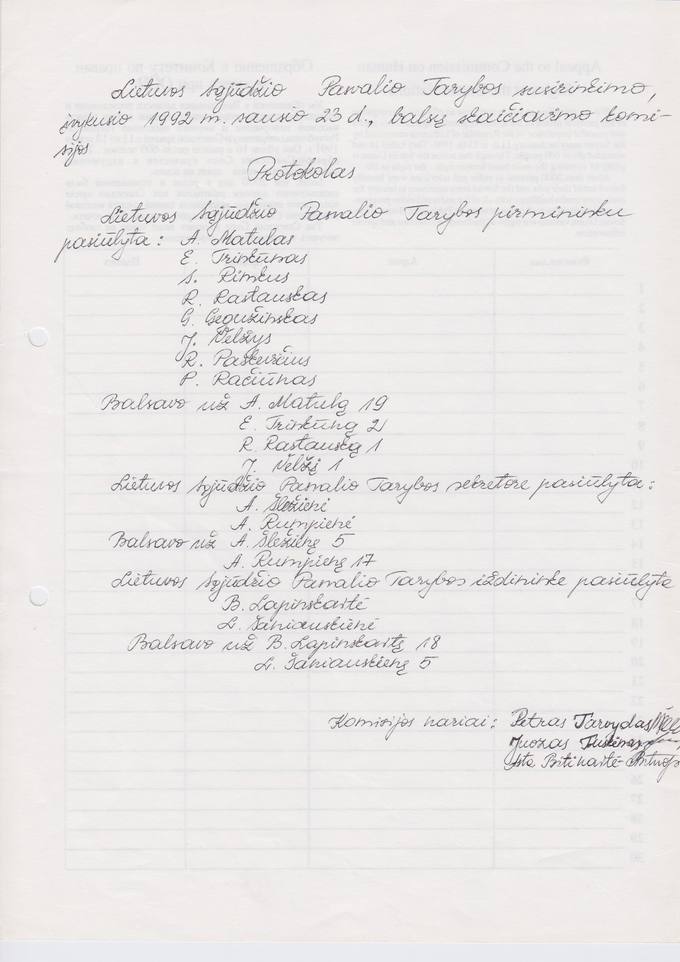 Lietuvos Sąjūdžio Pasvalio Tarybos susirinkimo,
įvykusio 1992 m. sausio 23 d., balsų skaičiavimo komi-
sijos
Protokolas
Lietuvos Sąjūdžio Pasvalio Tarybos pirmininku
pasiūlyta: A. Matulas
E. Trinkūnas
S. Rimkus
R. Rastauskas
G. Gegužinskas
J. Velžys
R. Paškevičius
P. Račiūnas
Balsavo už A. Matulą 19
E. Trinkūną 2
R. Rastauską 1
J. Velžį 1
Lietuvos Sąjūdžio Pasvalio Tarybos sekretore pasiūlyta:
A. Šležienė
A. Rumpienė
Balsavo už A. Šležienę 5
A. Rumpienę 17
Lietuvos Sąjūdžio Pasvalio Tarybos iždininke pasiūlyta
B. Lapinskaitė
L. Šaniauskienė
Balsavo už B. Lapinskaitę 18
L. Šaniauskienę 5
Komisijos nariai: Petras Tarvydas
Juozas
Asta Bitinaitė